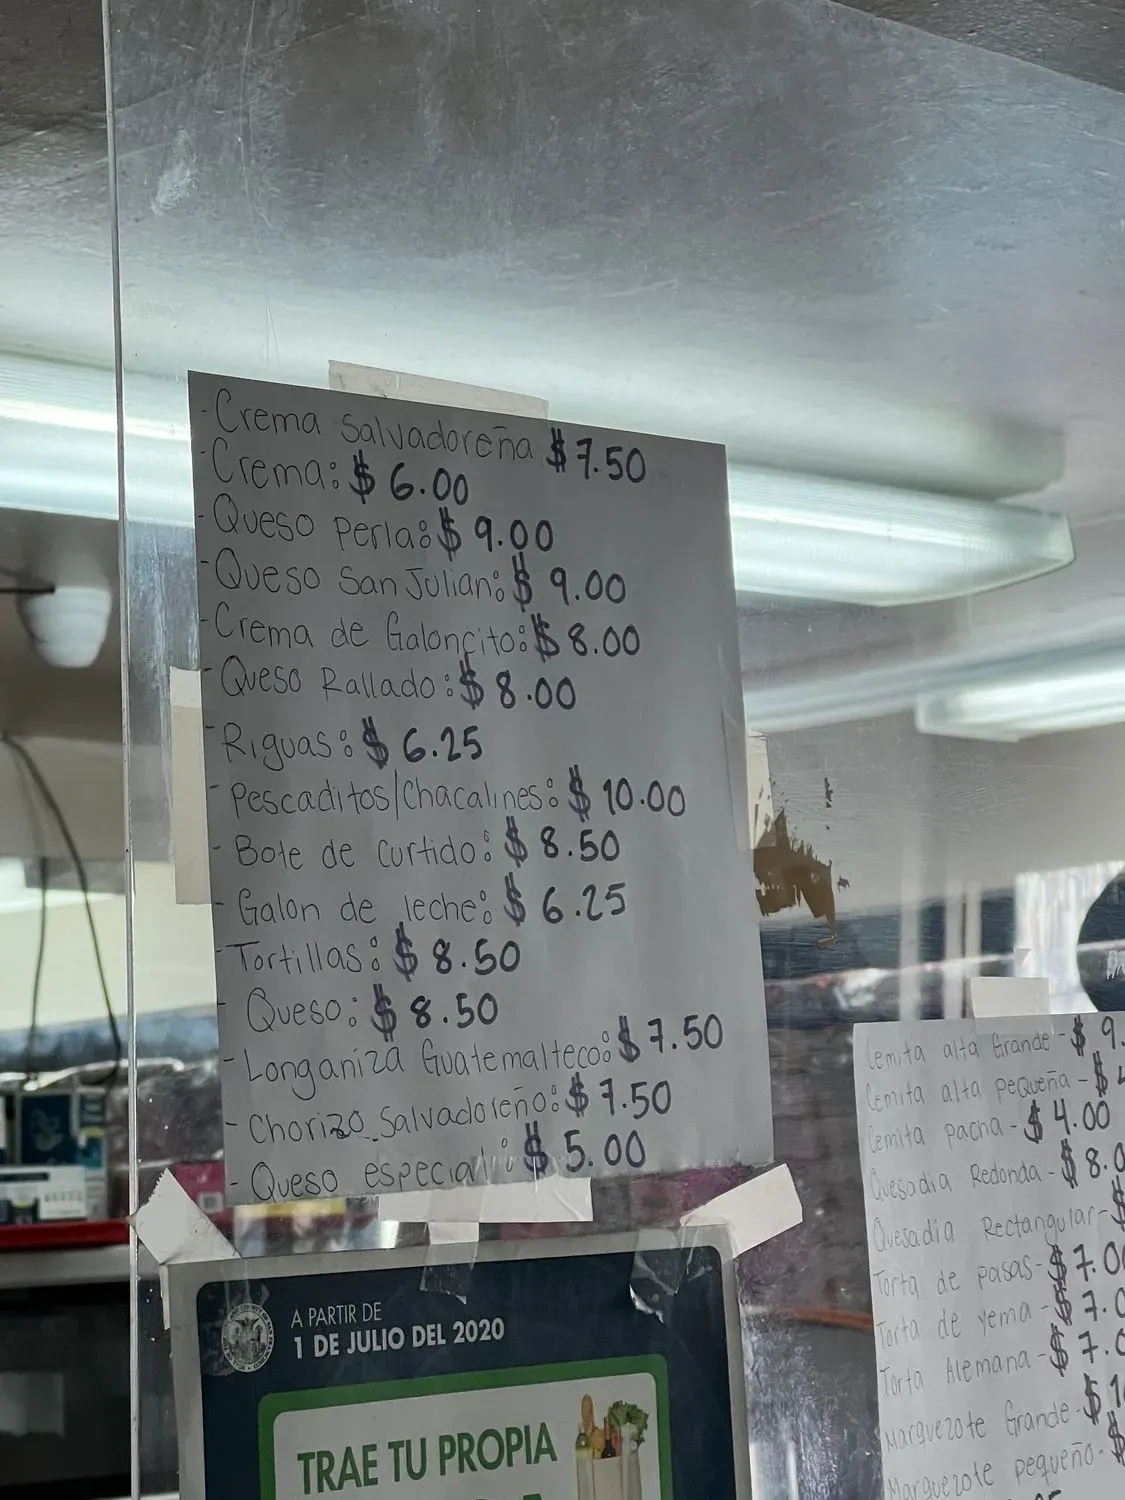 - Crema Salvadoreña $7.50
- Crema: $6.00
- Queso Perla: $9.00
- Queso San Julian: $9.00
- Crema de Galoncito: $8.00
- Queso Rallado: $8.00
- Riguas: $6.25
- Pescaditos/Chacalines: $10.00
- Bote de curtido: $8.50
- Galon de leche: $6.25
- Tortillas: $8.50
- Queso: $8.50
- Longaniza Guatemalteco: $7.50
- Chorizo Salvadoreño: $7.50
- Queso especial: $5.00
A PARTIR DE
1 DE JULIO DEL 2020
TRAE TU PROPIA
Lemita alta Grande - $9.
Lemita alta pequeña - $
Lemita pacha - $4.00
Quesadia Redonda - $8.0
Quesadia Rectangular - $
Torta de pasas - $7.00
Torta de yema - $7.0
Torta Alemana - $7.0
Marquezote Grande - $1
Marquezote pequeño - $